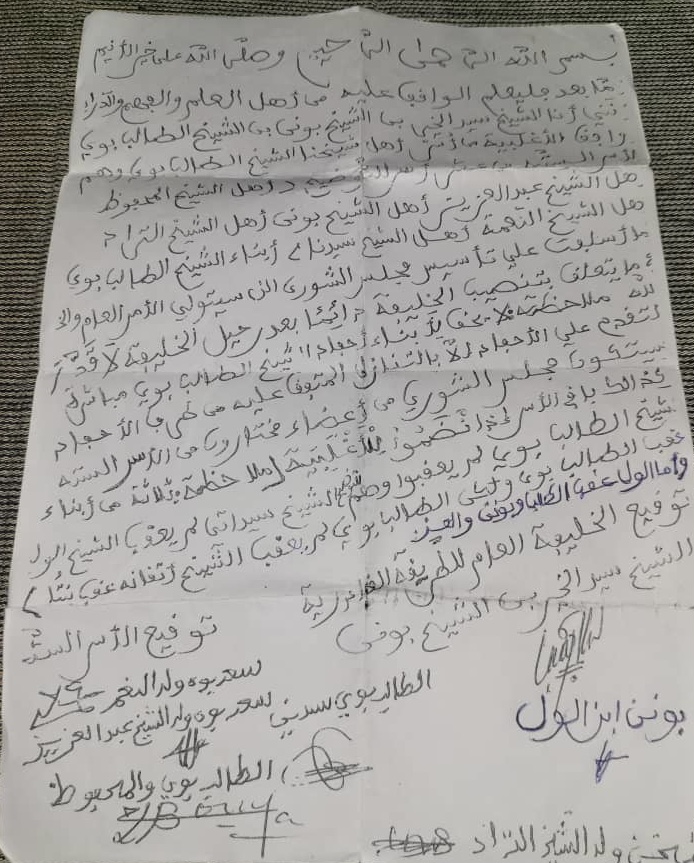 بسم الله الرحمن الرحيم وصلى الله على خير الأنيم
أما بعد فليعلم الواقف عليه من أهل العلم والفهم والذراء
أنني أنا الشيخ سيد الخير بن الشيخ بونن بن الشيخ الطالب بوي
وافق الأغلبية من أهل شيخنا الشيخ الطالب بوي وهم
أهل الشيخ المحفوظ
هل الشيخ عبد العزيز أهل الشيخ بونن أهل الشيخ التراد
هل الشيخ النعمة أهل الشيخ سيدنا أبناء الشيخ الطالب بوي
ما أسلفت على تأسيس مجلس الشورى الذي سيتولى الأمر العام
ما يتعلق بتنصيب الخليفة دائما بعد رحيل الخليفة لا قدر
الله ملاحظة لا يحق لأبناء أحفاد الشيخ الطالب بوي مباشرة
التقدم على الأحفاد إلا بالتنازل المتوفق عليه من طرف الأحفاد
سيتكون مجلس الشورى من أعضاء مختارون من الأسر الستة
كذالك باقي الأسر إذا انضموا للأغلبية ملاحظة ثلاثة من أبناء
شيخ الطالب بوي لم يعقبوا وهم الشيخ سيداتي لم يعقب الشيخ الول
عقب الطالب بوي وليلى الطالب بوي لم يعقب الشيخ أتفانه عقب بنتا
وأما الول عقب الطالب وبونن والعزيز
توقيع الخليفة العام للطريقة القادرية
الشيخ سيد الخير بن الشيخ بونن
توقيع الأسر الستة
سعدبوه ولد النعم
الطالب بوي سيدني
سعدبوه ولد الشيخ عبد العزيز
بونن ابن الول
الطالب بوي والمحفوظ
ولد الشيخ التراد